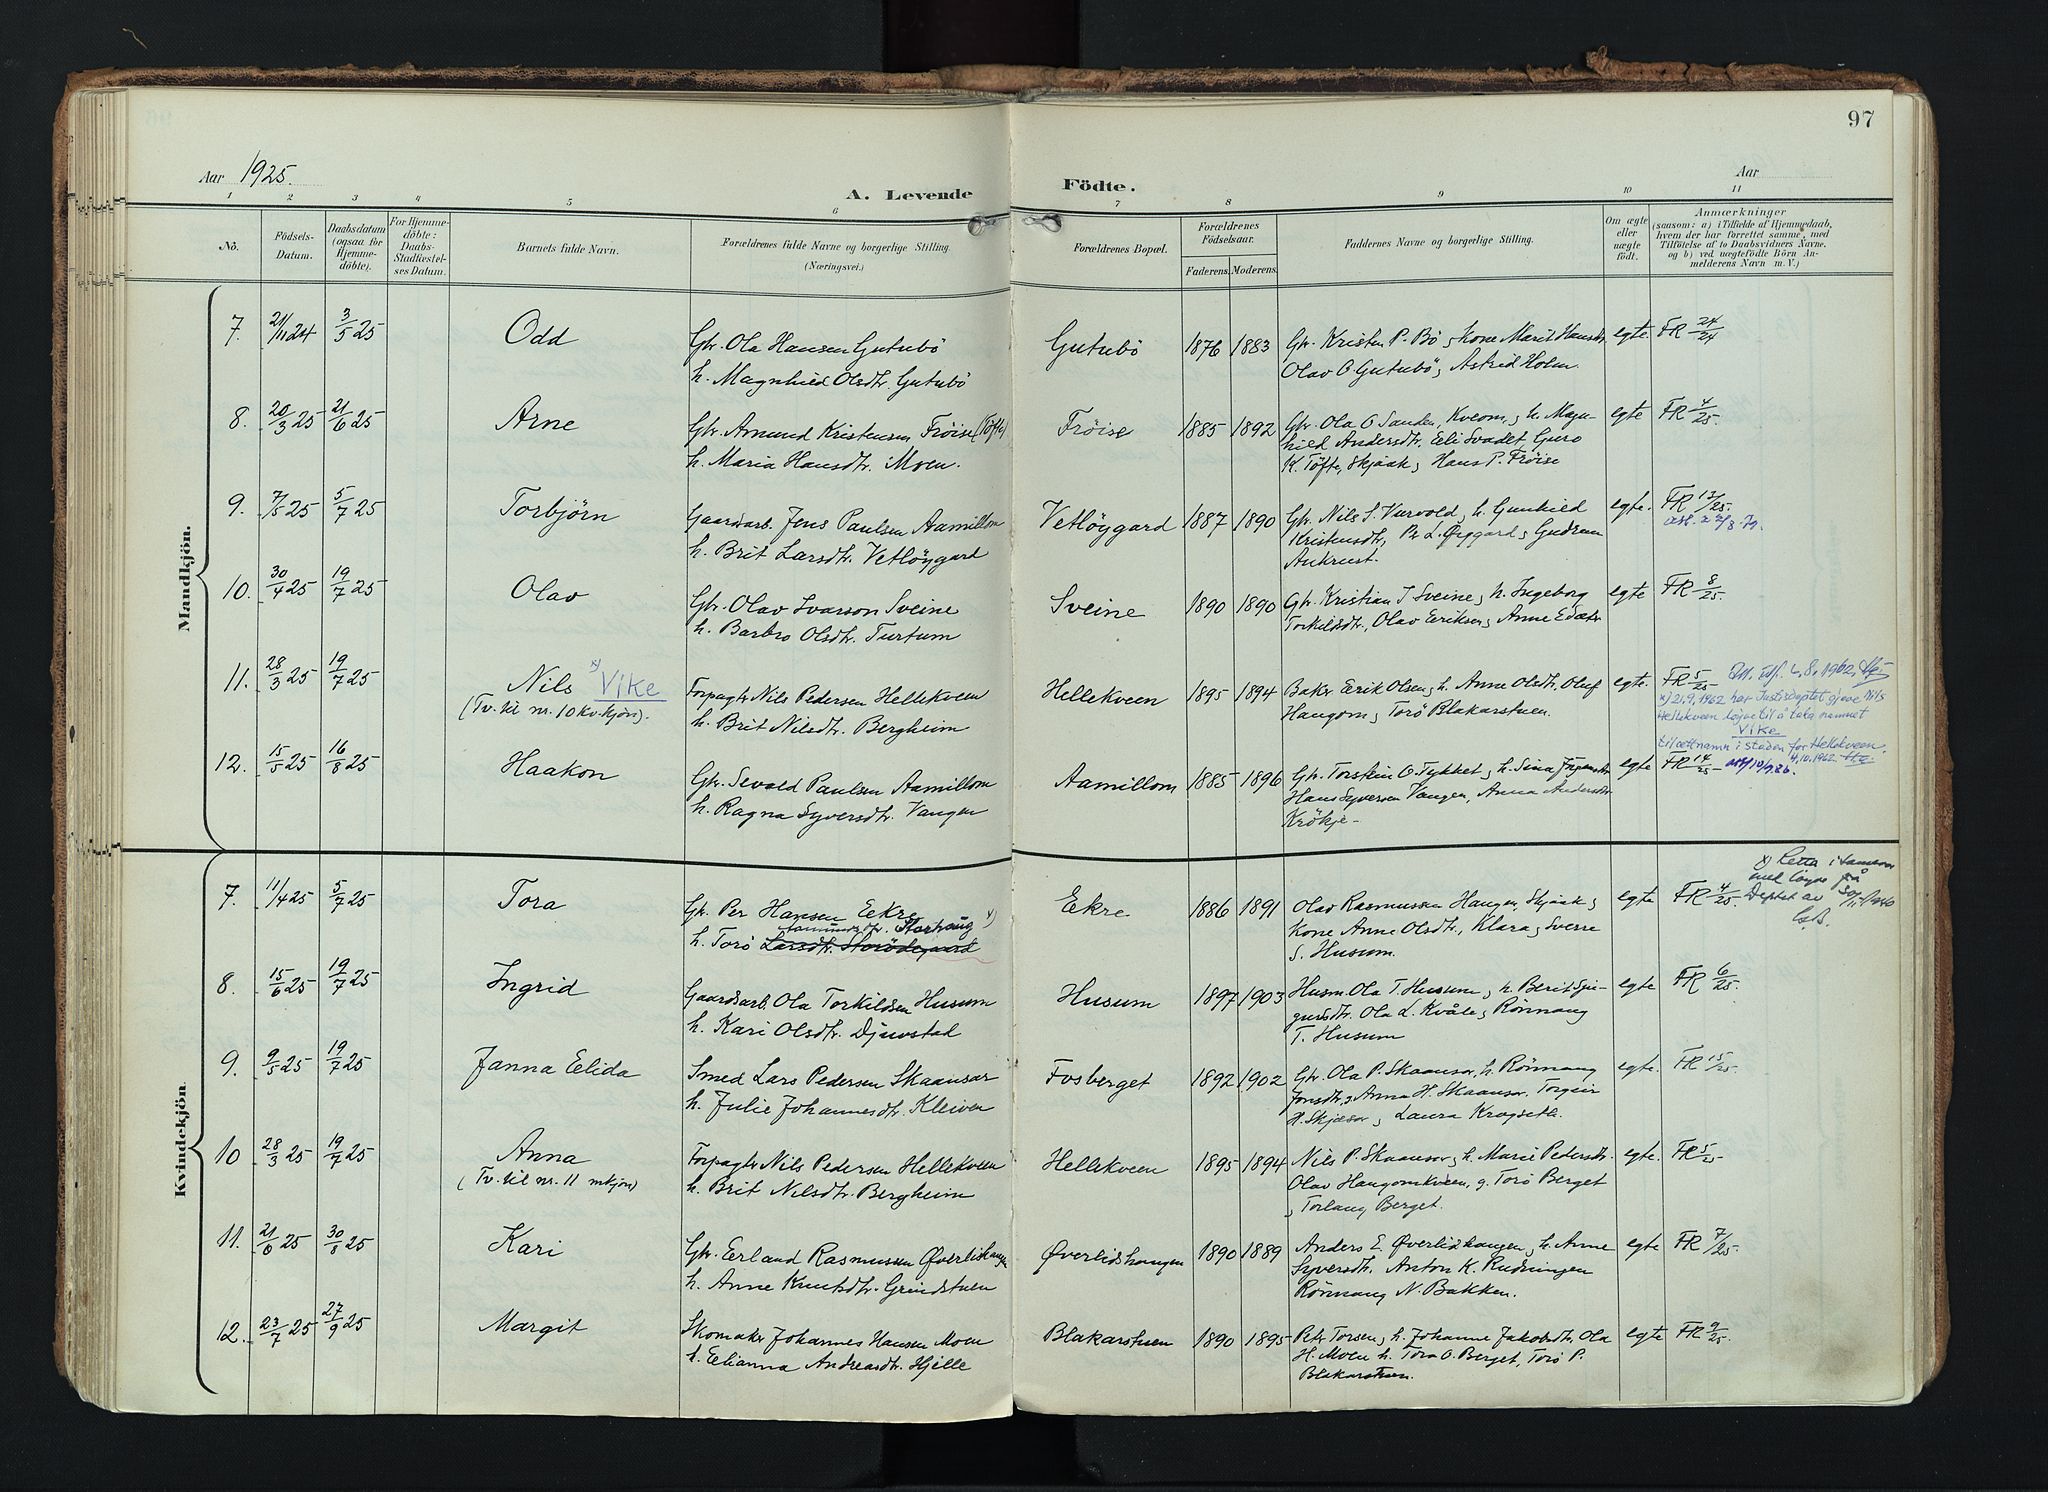 97
Aar 1925.
A. Levende Födte.
Aar
1 2 3 4 5 6 7 8 9 10 11
Nô.
Födsels-
Datum.
Daabsdatum
(ogsaa for
Hjemme-
döbte).
For Hjemme-
döbte:
Daabs-
Stadfæstel-
ses Datum.
Barnets fulde Navn.
Forældrenes fulde Navne og borgerlige Stilling.
(Næringsvei.)
Forældrenes Bopæl.
Forældrenes
Födselsaar.
Faderens. Moderens.
Faddernes Navne og borgerlige Stilling.
Om ægte
eller
uægte
födt.
Anmærkninger
(saasom: a) i Tilfælde af Hjemmedaab,
hvem der har forrettet samme, med
Tilföielse af to Daabsvidners Navne,
og b) ved uægtefödte Börn An-
melderens Navn m. V.)
Mandkjön.
7. 21/11 24 3/5 25 Odd
Gbr. Ola Hansen Gutubö
h. Magnhild Olsdtr. Gutubö
Gutubö 1876 1883
Gbr. Kristen P. Bö, Kone Marit Hansdtr.
Olav O Gutubö, Astrid Holm.
egte. FR 24/24
8. 20/3 25 21/6 25 Arne
Gbr. Amund Kristensen Fröise (Töfte)
h. Maria Hansdtr. Moen.
Fröise 1885 1892
Gbr. Ola O Sanden, Kveom, h. Magn-
hild Andersdtr. Eli Svadet, Guro
K. Töfte, Skjåk, Hans P. Fröise
egte FR 4/25.
9. 7/5 25 5/7 25 Torbjörn
Gaardsarb. Jens Paulsen Aamillom
h. Brit Larsdtr. Vetlöygard
Vetlöygard 1887 1890
Gbr. Nils S. Vurvold, h. Gunhild
Kristensdtr, Per L. Øygard, Gudrun
Aukrust.
egte. FR 13/25.
10. 30/4 25 19/7 25 Olav
Gbr. Olav Ivarson Sveine
h. Barbro Olsdtr. Turtum
Sveine 1890 1890
Gbr. Kristian I Sveine, h. Ingeborg
Torkildsdtr., Olav Eriksen, Anne
egte FR 8/25.
11. 28/3 25 19/7 25 Nils x) Vike
(Tv. til nr. 10 kv.kjön).
Forpagtr Nils Pedersen Hellekveen
h. Brit Nilsdtr. Bergheim
Hellekveen 1895 1894
Baker Eerik Olsen, h. Anne Olsdtr, Oluf
Haugom, Torö Blakarstuen.
egte. FR 5/25 8.1962.
x) 21.9.1962 har Justisdeptet gjeve Nils
Hellekveen löyve til å taka namnet
Vike
til ættnamn i staden for Hellekveen.
4.10.1962.
12. 15/5 25 16/8 25 Haakon
Gbr. Sevald Paulsen Aamillom
h. Ragna Syversdtr. Vangen
Aamillom 1885 1896
Gbr. Torstein O. Tykket, h. Sina
Hans Syversen Vangen, Anna Andersdtr.
Krökje -
egte FR 14/25
Kvindekjön
7. 11/4 25 5/7 25 Tora
Gbr. Per Hansen Eekre
Storhaug x)
h. Torö Larsdtr. Storödegaard
Ekre 1886 1891
Olav Rasmussen Haugen, Skjåk,
Kone Anne Olsdtr., Klara, Sverre
S. Husum.
egte FR 4/25.
x) Retta i samsvar
med löyve frå
Deptet av
8. 15/6 25 19/7 25 Ingrid
Gaardsarb. Ola Torkildsen Husum
h. Kari Olsdtr. Djuvstad
Husum 1897 1903
Husm. Ola T. Husum, h. Berit Sji-
gurdsdtr. Ola L. Kvåle, Rönnaug
T. Husum
egte FR 6/25.
9. 9/5 25 19/7 25 Janna Eelida
Smed Lars Pedersen Skaansar
h. Julie Johannesdtr. Kleiven
Fosberget 1892 1902
Gbr. Ola P. Skaansar, h. Rönnaug
Jonsdtr, Anna H. Skaansar. Torgeir
H. Skjæsar, Laura Krogseth.
egte. FR 15/25.
10 28/3 25 19/7 25 Anna
(Tv. til nr. 11 mkjön)
Forpagtr Nils Pedersen Hellekveen
h. Brit Nilsdtr. Bergheim
Hellekveen 1895 1894
Nils P. Skaansar, h. Marie Pedersdtr.
Olav Haugomkveen, g. Torö Berget
, Torlaug Berget.
egte. FR 5/25
11. 21/6 25 30/8 25 Kari
Gbr. Erland Rasmussen Øverlidhaugen
h. Anne Knutsdtr. Grindstuen
Øverlidshaugen 1890 1889
Anders E. Øverlidhaugen, h. Anne
Syversdtr. Anton K. Rudningen
Rönnaug N. Bakken.
egte FR 7/25.
12. 23/7 25 27/9 25 Margit
Skomaker Johannes Hansen Moen
h. Elianna Andreasdtr. Hjelle
Blakarstuen 1890 1895
Petr. Torsen, h. Johanne Jakobsdtr. Ola
H. Moen h. Tora O. Berget, Torö P.
Blakarstuen.
egte FR 9/25.